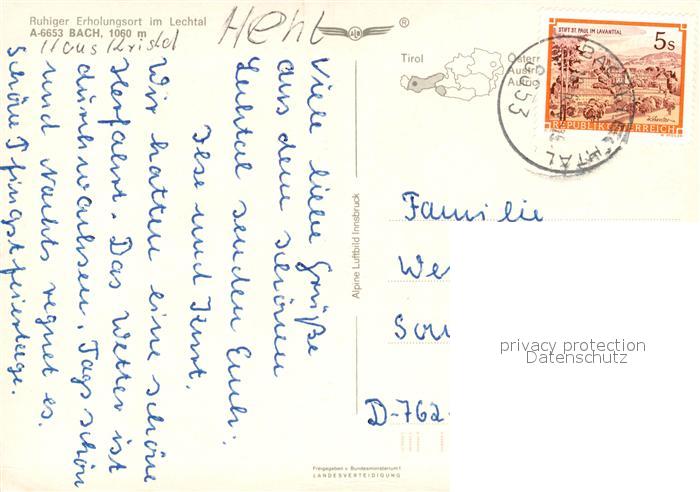 Ruhiger Erholungsort im Lechtal
A-6653 BACH, 1060 m
Haus Kristel
Hehl
®
Viele liebe Grüße
aus dem schönen
Lechtal senden Euch:
Ilse und Ernst.
Wir hatten eine schöne
Herfahrt. Das Wetter ist
durchwachsen. Tags schön
und Nachts regnet es.
Schöne Pfingstfeiertage.
Alpine Luftbild Innsbruck
Tirol
Österr
Austri
STIFT ST. PAUL IM LAVANTTAL
5s
REPUBLIK ÖSTERREICH
6653
Familie
We
D-762
privacy protection
Datenschutz
Freigegeben v. Bundesministerium f.
LANDESVERTEIDIGUNG